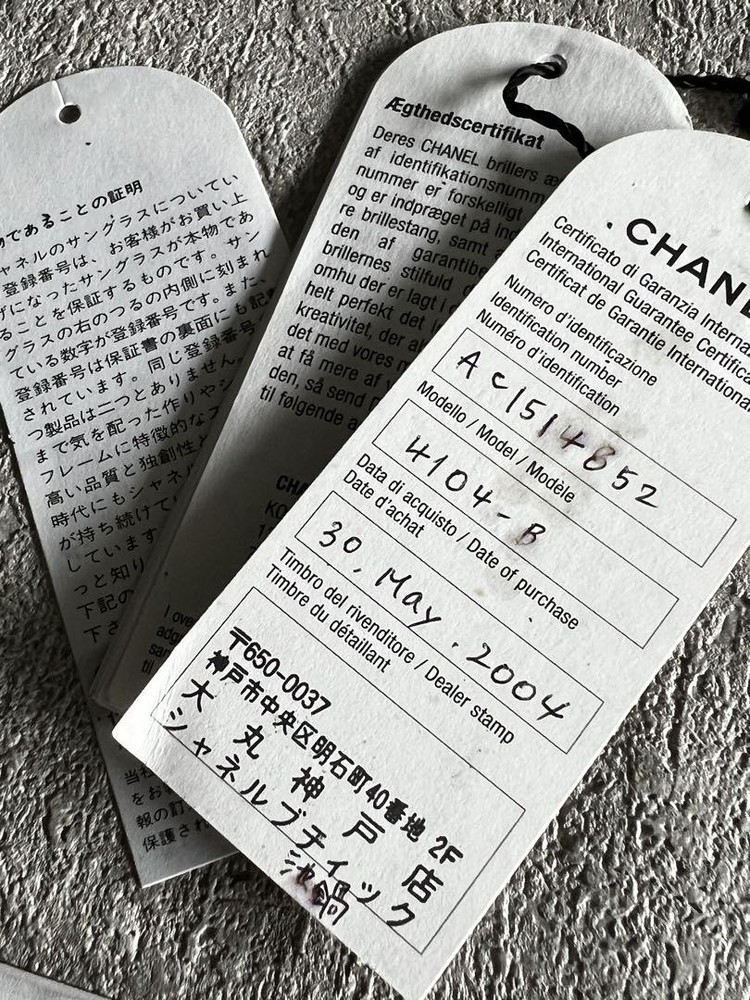 であることの証明
ャネルのサングラスについてい
登録番号は、お客様がお買い上
げになったサングラスが本物であ
ることを保証するものです。サン
グラスの右のつるの内側に刻まれ
ている数字が登録番号です。また、
登録番号は保証書の裏面にも記
されています。同じ登録番号
つ製品は二つとありません。
まで気を配った作りやシ
フレームに特徴的なフ
高い品質と独創性と
時代にもシャネル
が持ち続けてい
しています
っと知り
下記の
下さ
当社
をお
報の訂
保護され
Ægthedscertifikat
Deres CHANEL brillers æ
af identifikationsnumm
nummer er forskelligt
og er indpræget på ind
re brillestang, samt
den af garantibe
brillernes stilfuld
omhu der er lagt i
helt perfekt det i
kreativitet, der al
det med vores m
at få mere af v
den, så send
til følgende a
CHA
KO
I ove
adg
sam
til
CHANEL
Certificato di Garanzia Interna
International Guarantee Certifica
Certificat de Garantie Internationa
Numero d'identificazione
Identification number
Numéro d'identification
AC1514852
Modello / Model / Modèle
4104-B
Data di acquisto / Date of purchase
Date d'achat
30, May. 2004
Timbro del rivenditore / Dealer stamp
Timbre du détaillant
〒650-0037
神戸市中央区明石町40番地 2F
大丸神戸店
シャネルブティック